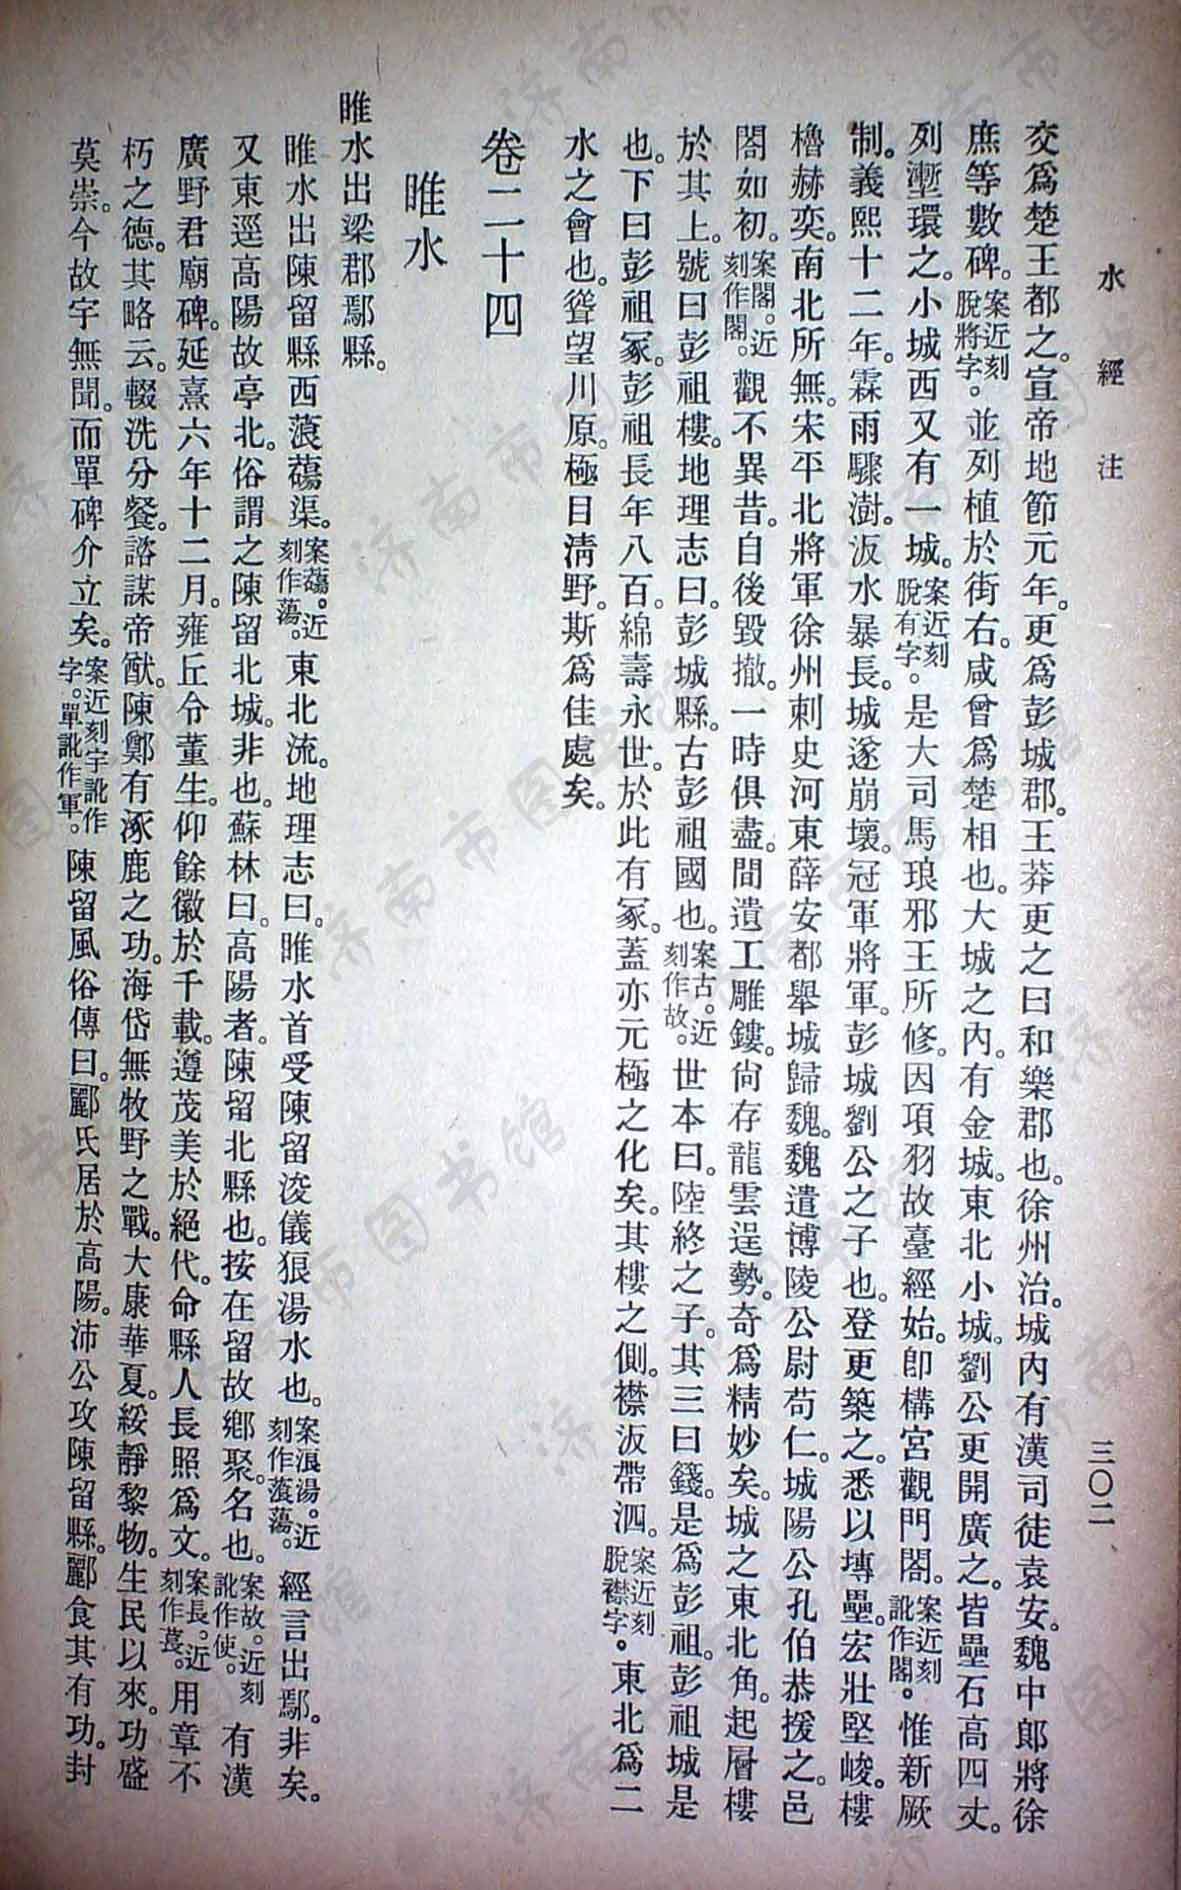 水經注
三〇二
交爲楚王都之。宣帝地節元年。更爲彭城郡。王莽更之曰和樂郡也。徐州治。城內有漢司徒袁安。魏中郎將徐
庶等數碑。案近刻脫將字。並列植於街右。咸曾爲楚相也。大城之內。有金城。東北小城。劉公更開廣之。皆壘石高四丈。
列壍環之。小城西又有一城。案近刻脫有字。是大司馬琅邪王所修。因項羽故臺經始。卽構宮觀門閣。案近刻訛作閤。惟新厥
制。義熙十二年。霖雨驟澍。汳水暴長。城遂崩壞。冠軍將軍。彭城劉公之子也。登更築之。悉以塼壘。宏壯堅峻。樓
櫓赫奕。南北所無。宋平北將軍徐州刺史河東薛安都舉城歸魏。魏遣博陵公尉苟仁。城陽公孔伯恭援之。邑
閣如初。案閣。近刻作閤。觀不異昔。自後毀撤。一時俱盡。間遺工雕鏤。尙存龍雲逞勢。奇爲精妙矣。城之東北角。起層樓
於其上。號曰彭祖樓。地理志曰。彭城縣。古彭祖國也。案古。近刻作故。世本曰。陸終之子。其三曰籛。是爲彭祖。彭祖城是
也。下曰彭祖冢。彭祖長年八百。綿壽永世。於此有冢。蓋亦元極之化矣。其樓之側。襟汳帶泗。案近刻脫襟字。東北爲二
水之會也。聳望川原。極目淸野。斯爲佳處矣。
卷二十四
睢水
睢水出梁郡鄢縣。
睢水出陳留縣西蒗蕩渠。案蕩。近刻作蕩。東北流。地理志曰。睢水首受陳留浚儀狼湯水也。案浪湯。近刻作蒗蕩。經言出鄢。非矣。
又東逕高陽故亭北。俗謂之陳留北城。非也。蘇林曰。高陽者。陳留北縣也。按在留故鄕聚名也。案故。近刻訛作使。有漢
廣野君廟碑。延熹六年十二月。雍丘令董生。仰餘徽於千載。遵茂美於絕代。命縣人長照爲文。案長。近刻作萇。用章不
朽之德。其略云。輟洗分餐。諮謀帝猷。陳鄭有涿鹿之功。海岱無牧野之戰。大康華夏。綏靜黎物。生民以來。功盛
莫崇。今故宇無聞。而單碑介立矣。案近刻宇訛作字。單訛作軍。陳留風俗傳曰。酈氏居於高陽。沛公攻陳留縣。酈食其有功。封